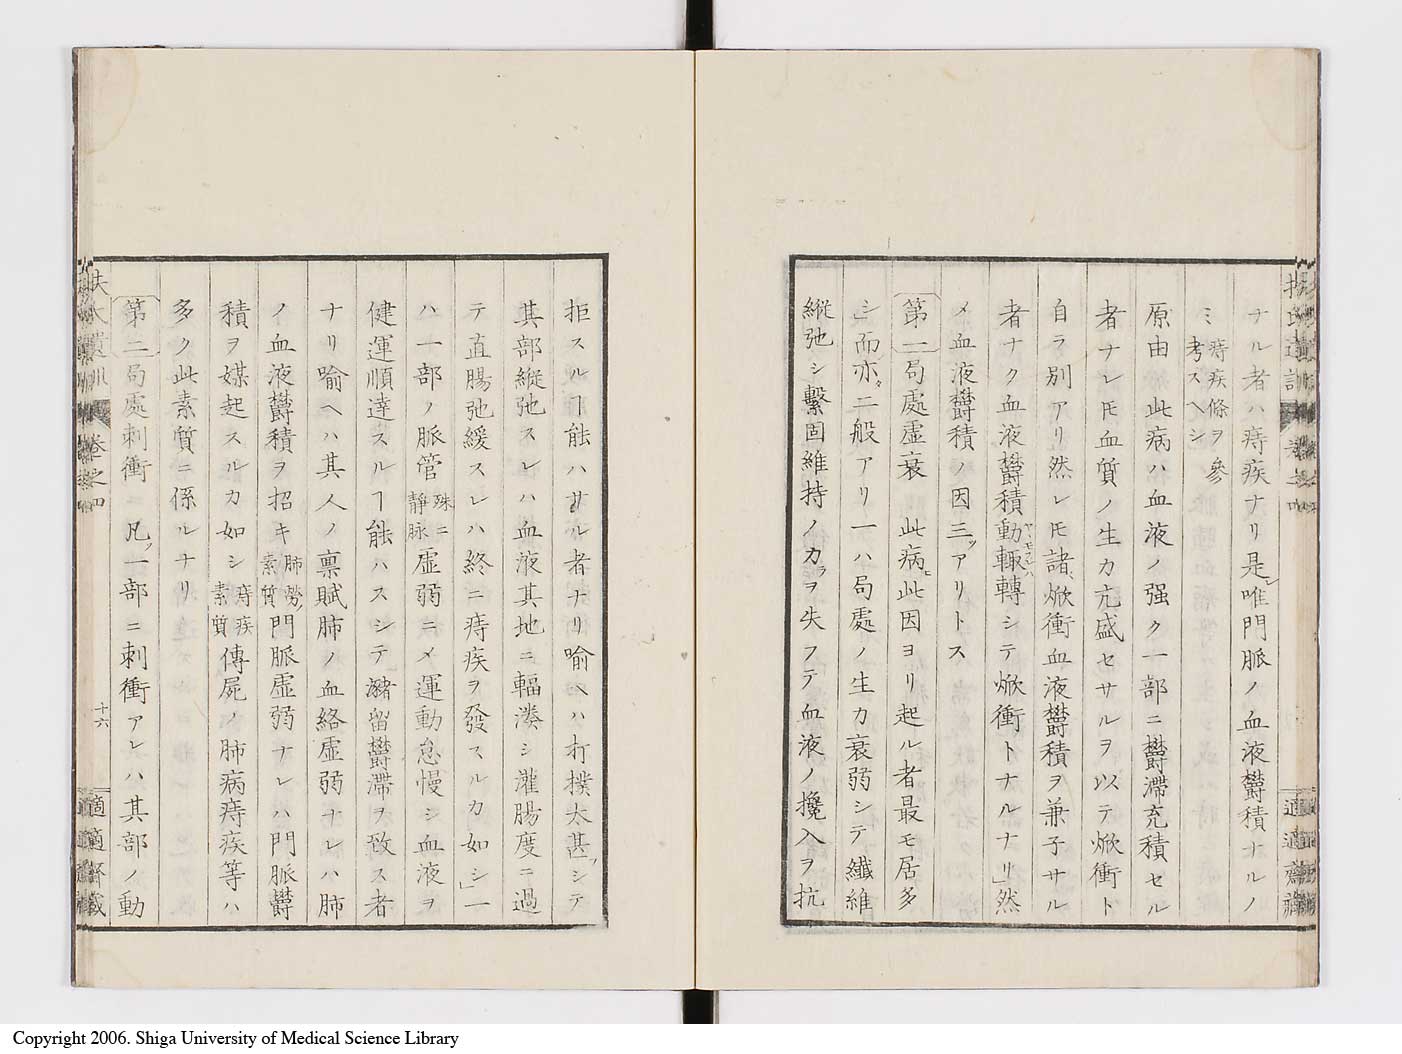 ナル者ハ痔疾ナリ是レ唯門脈ノ血液欝積ナルノ
ミ痔疾條ヲ參考スヘシ
原由此病ハ血液ノ强ク一部ニ欝滞充積セル
者ナレ𪜈血質ノ生力亢盛セサルヲ以テ焮衝ト
自ラ別アリ然レ𪜈諸焮衝血液欝積ヲ兼子サル
者ナク血液欝積動輙轉シテ焮衝トナルナリ」然
メ血液欝積ノ因三ツアリトス
第一局處虚衰 此病モ此因ヨリ起ル者最モ居多
シ而亦タ二般アリ一ハ局處ノ生力衰弱シテ纎維
縱弛シ繫固維持ノ力ラヲ失フテ血液ノ攙入ヲ抗
拒スルヿ能ハサル者ナリ喩ヘハ打撲太甚ツシテ
其部縱弛スレハ血液其地ニ輻湊シ灌腸度ニ過
テ直腸弛緩スレハ終ニ痔疾ヲ發スルカ如シ」一
ハ一部ノ脈管殊ニ静脈虚弱ニメ運動怠慢シ血液ヲ
健運順達スルヿ能ハスシテ瀦留欝滞ヲ致ス者
ナリ喩ヘハ其人ノ禀賦肺ノ血絡虚弱ナレハ肺
ノ血液欝積ヲ招キ肺勞ノ素質門脈虚弱ナレハ門脈欝
積ヲ媒起スルカ如シ痔疾素質傳屍ノ肺病痔疾等ハ
多ク此素質ニ係ルナリ
第二局處刺衝ニ凡ソ一部ニ刺衝アレハ其部ノ動
扶氏遺訓 卷之四
十六
適適齋藏